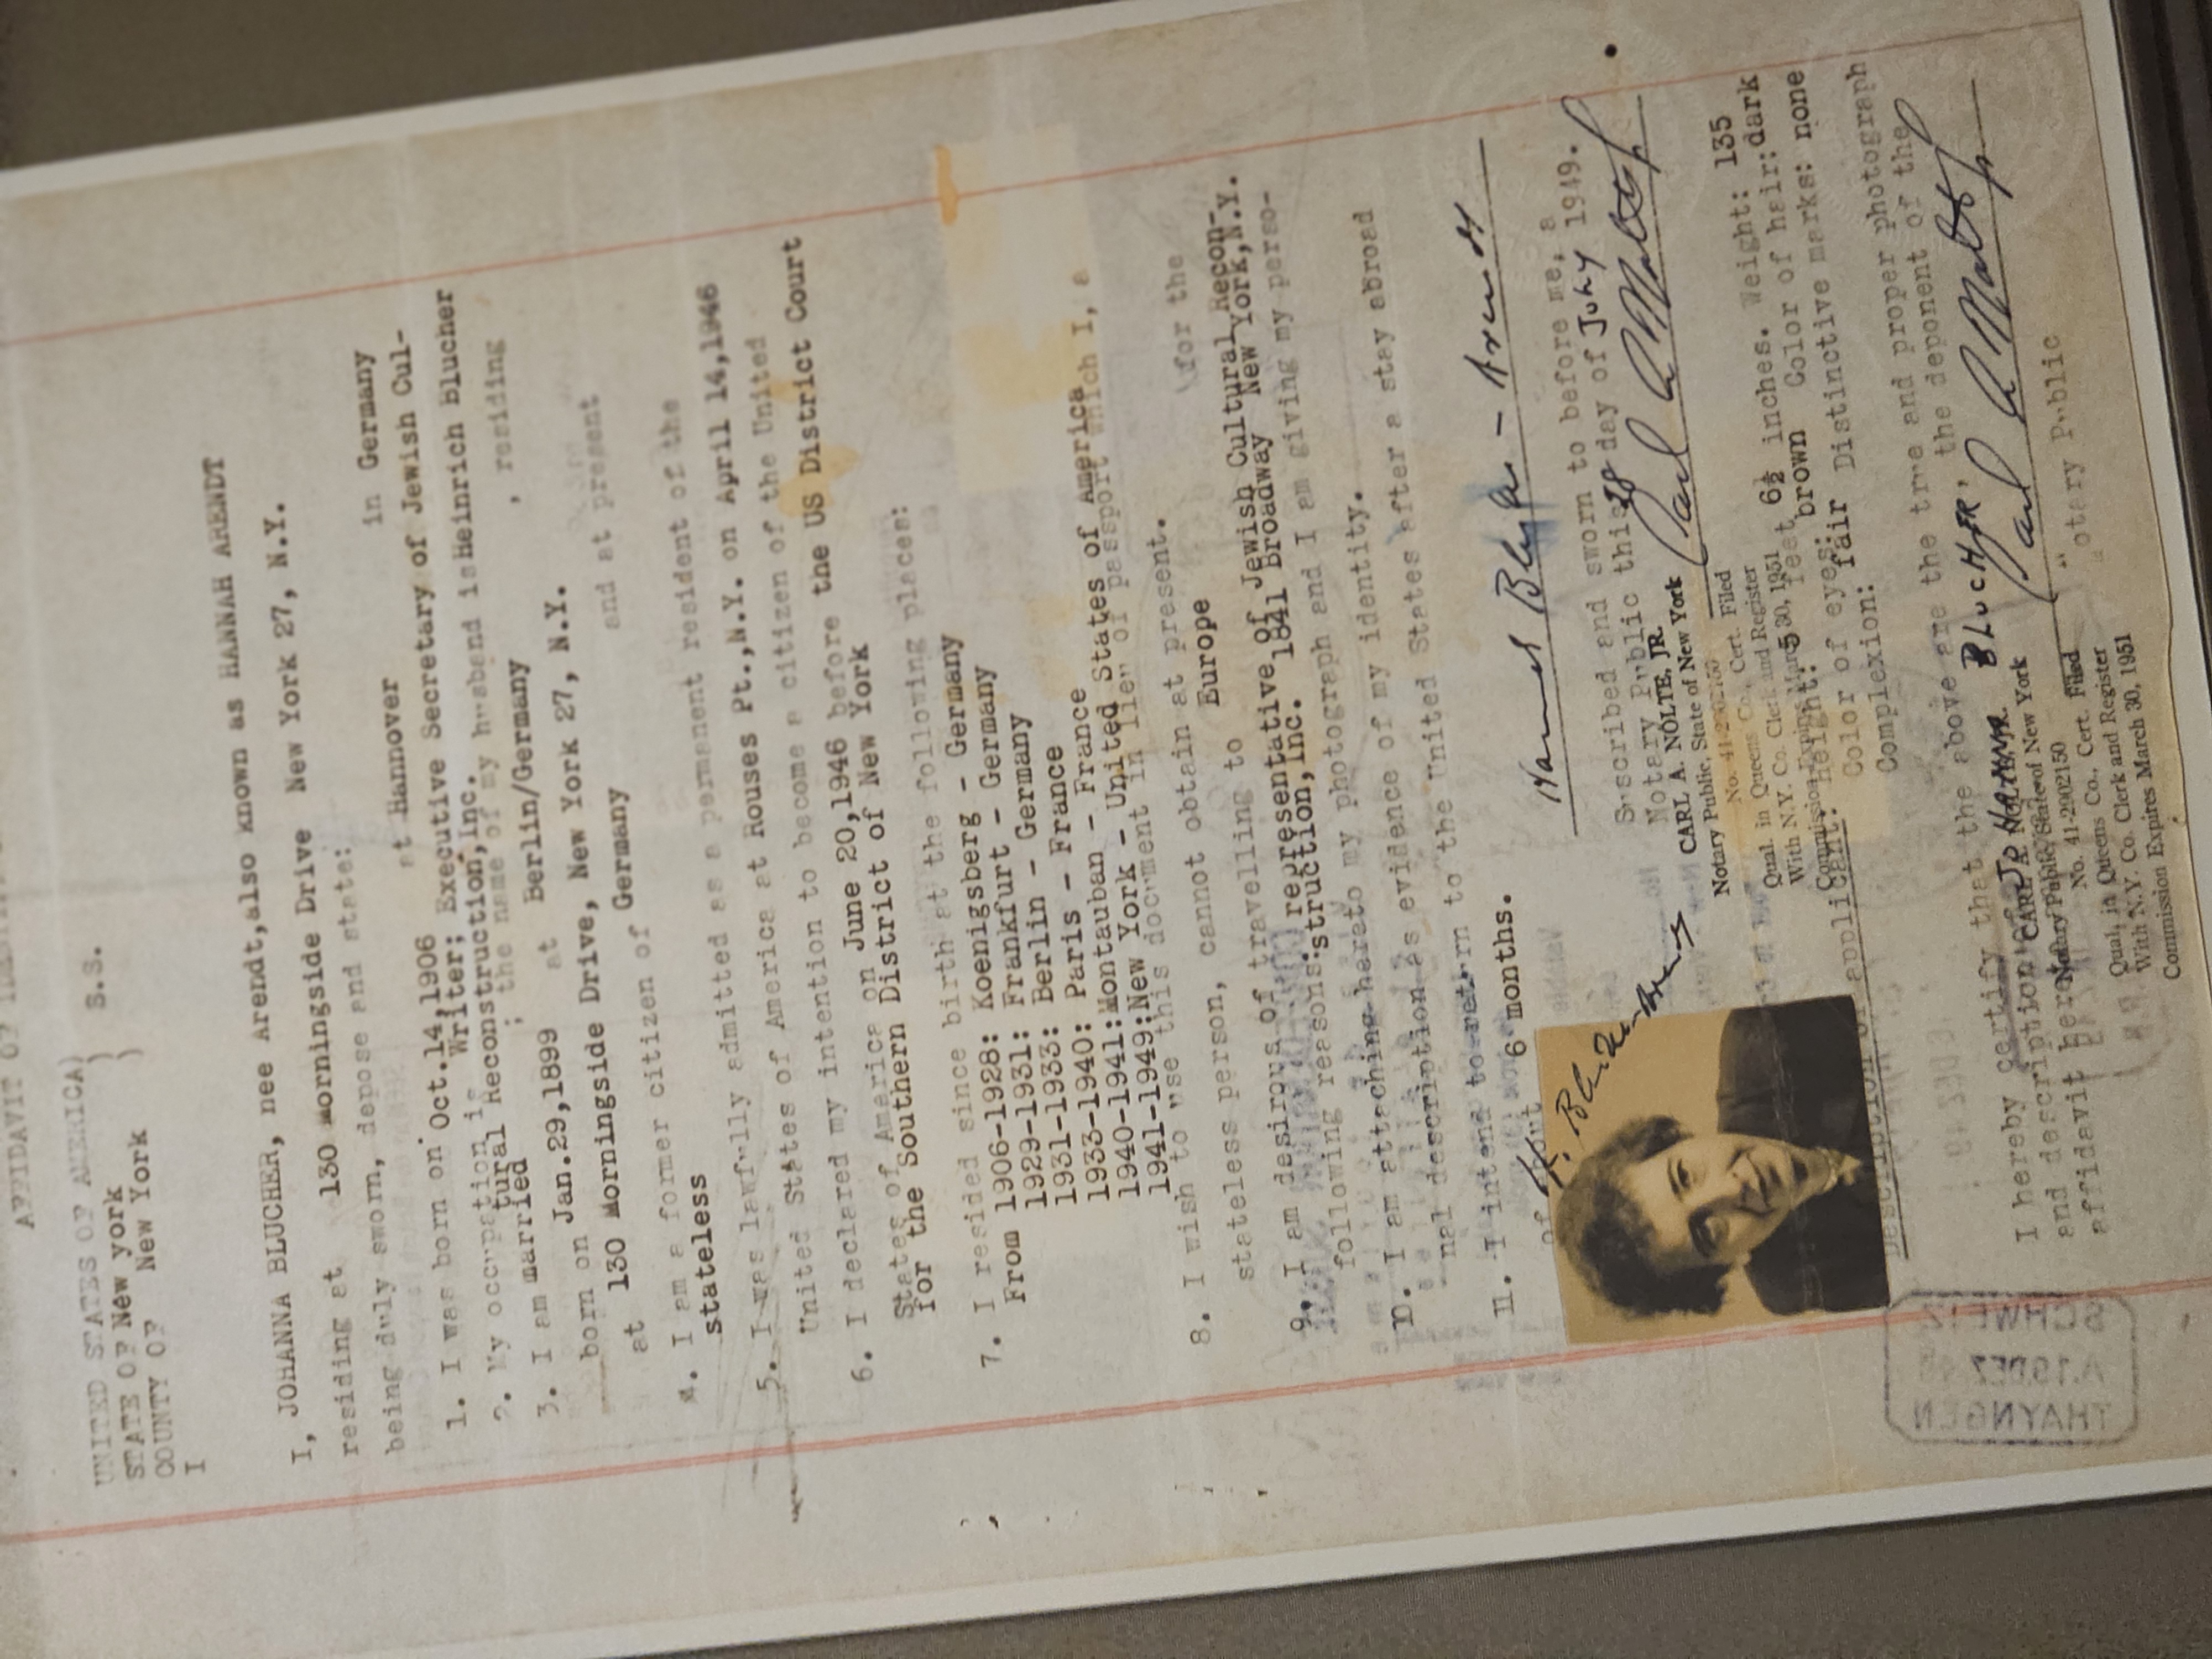 AFFIDAVIT OF
UNITED STATES OF AMERICA)
STATE OF New york ) S.S.
COUNTY OF New York )
I
I, JOHANNA BLUCHER, nee Arendt,also known as HANNAH ARENDT
residing at 130 Morningside Drive New York 27, N.Y.
being duly sworn, depose and state:
1. I was born on Oct.14,1906 at Hannover in Germany
2. My occupation is Writer; Executive Secretary of Jewish Cul-
tural Reconstruction,Inc.
3. I am married ; the name of my husband is Heinrich Blucher
born on Jan.29,1899 at Berlin/Germany , residing
at 130 Morningside Drive, New York 27, N.Y.
4. I am a former citizen of Germany and at present
stateless
5. I was lawfully admitted as a permanent resident of the
United States of America at Rouses Pt.,N.Y. on April 14,1946
6. I declared my intention to become a citizen of the United
States of America on June 20,1946 before the US District Court
for the Southern District of New York
7. I resided since birth at the following places:
From 1906-1928: Koenigsberg - Germany
1929-1931: Frankfurt - Germany
1931-1933: Berlin - Germany
1933-1940: Paris - France
1940-1941:Montauban - France
1941-1949:New York - United States of America
8. I wish to use this document in lieu of passport which I, a
stateless person, cannot obtain at present.
9. I am desirous of travelling to Europe for the
following reasons: representative of Jewish Cultural Recon-
struction,Inc. 1841 Broadway New York,N.Y.
10. I am attaching hereto my photograph and I am giving my perso-
nal description as evidence of my identity.
11. I intend to return to the United States after a stay abroad
of about 6 months.
Hannah Blücher - Arendt
Subscribed and sworn to before me, a
Notary Public this 28 day of July 1949.
Carl A Nolte Jr
CARL A. NOLTE, JR.
Notary Public, State of New York
No. 41-2902150
Qual. in Queens Co., Cert. Filed
With N.Y. Co. Clerk and Register
Commission Expires March 30, 1951
Description of applicant: Height: 5 feet 6½ inches. Weight: 135
Color of eyes: brown Color of hair:dark
Complexion: fair Distinctive marks: none
I hereby certify that the above are the true and proper photograph
and description of Johanna BLUCHER, the deponent of the
affidavit
Carl A Nolte Jr
Notary Public
CARL A. NOLTE, JR.
Notary Public, State of New York
No. 41-2902150
Qual. in Queens Co., Cert. Filed
With N.Y. Co. Clerk and Register
Commission Expires March 30, 1951
SCHWEIZ
THAYNGEN